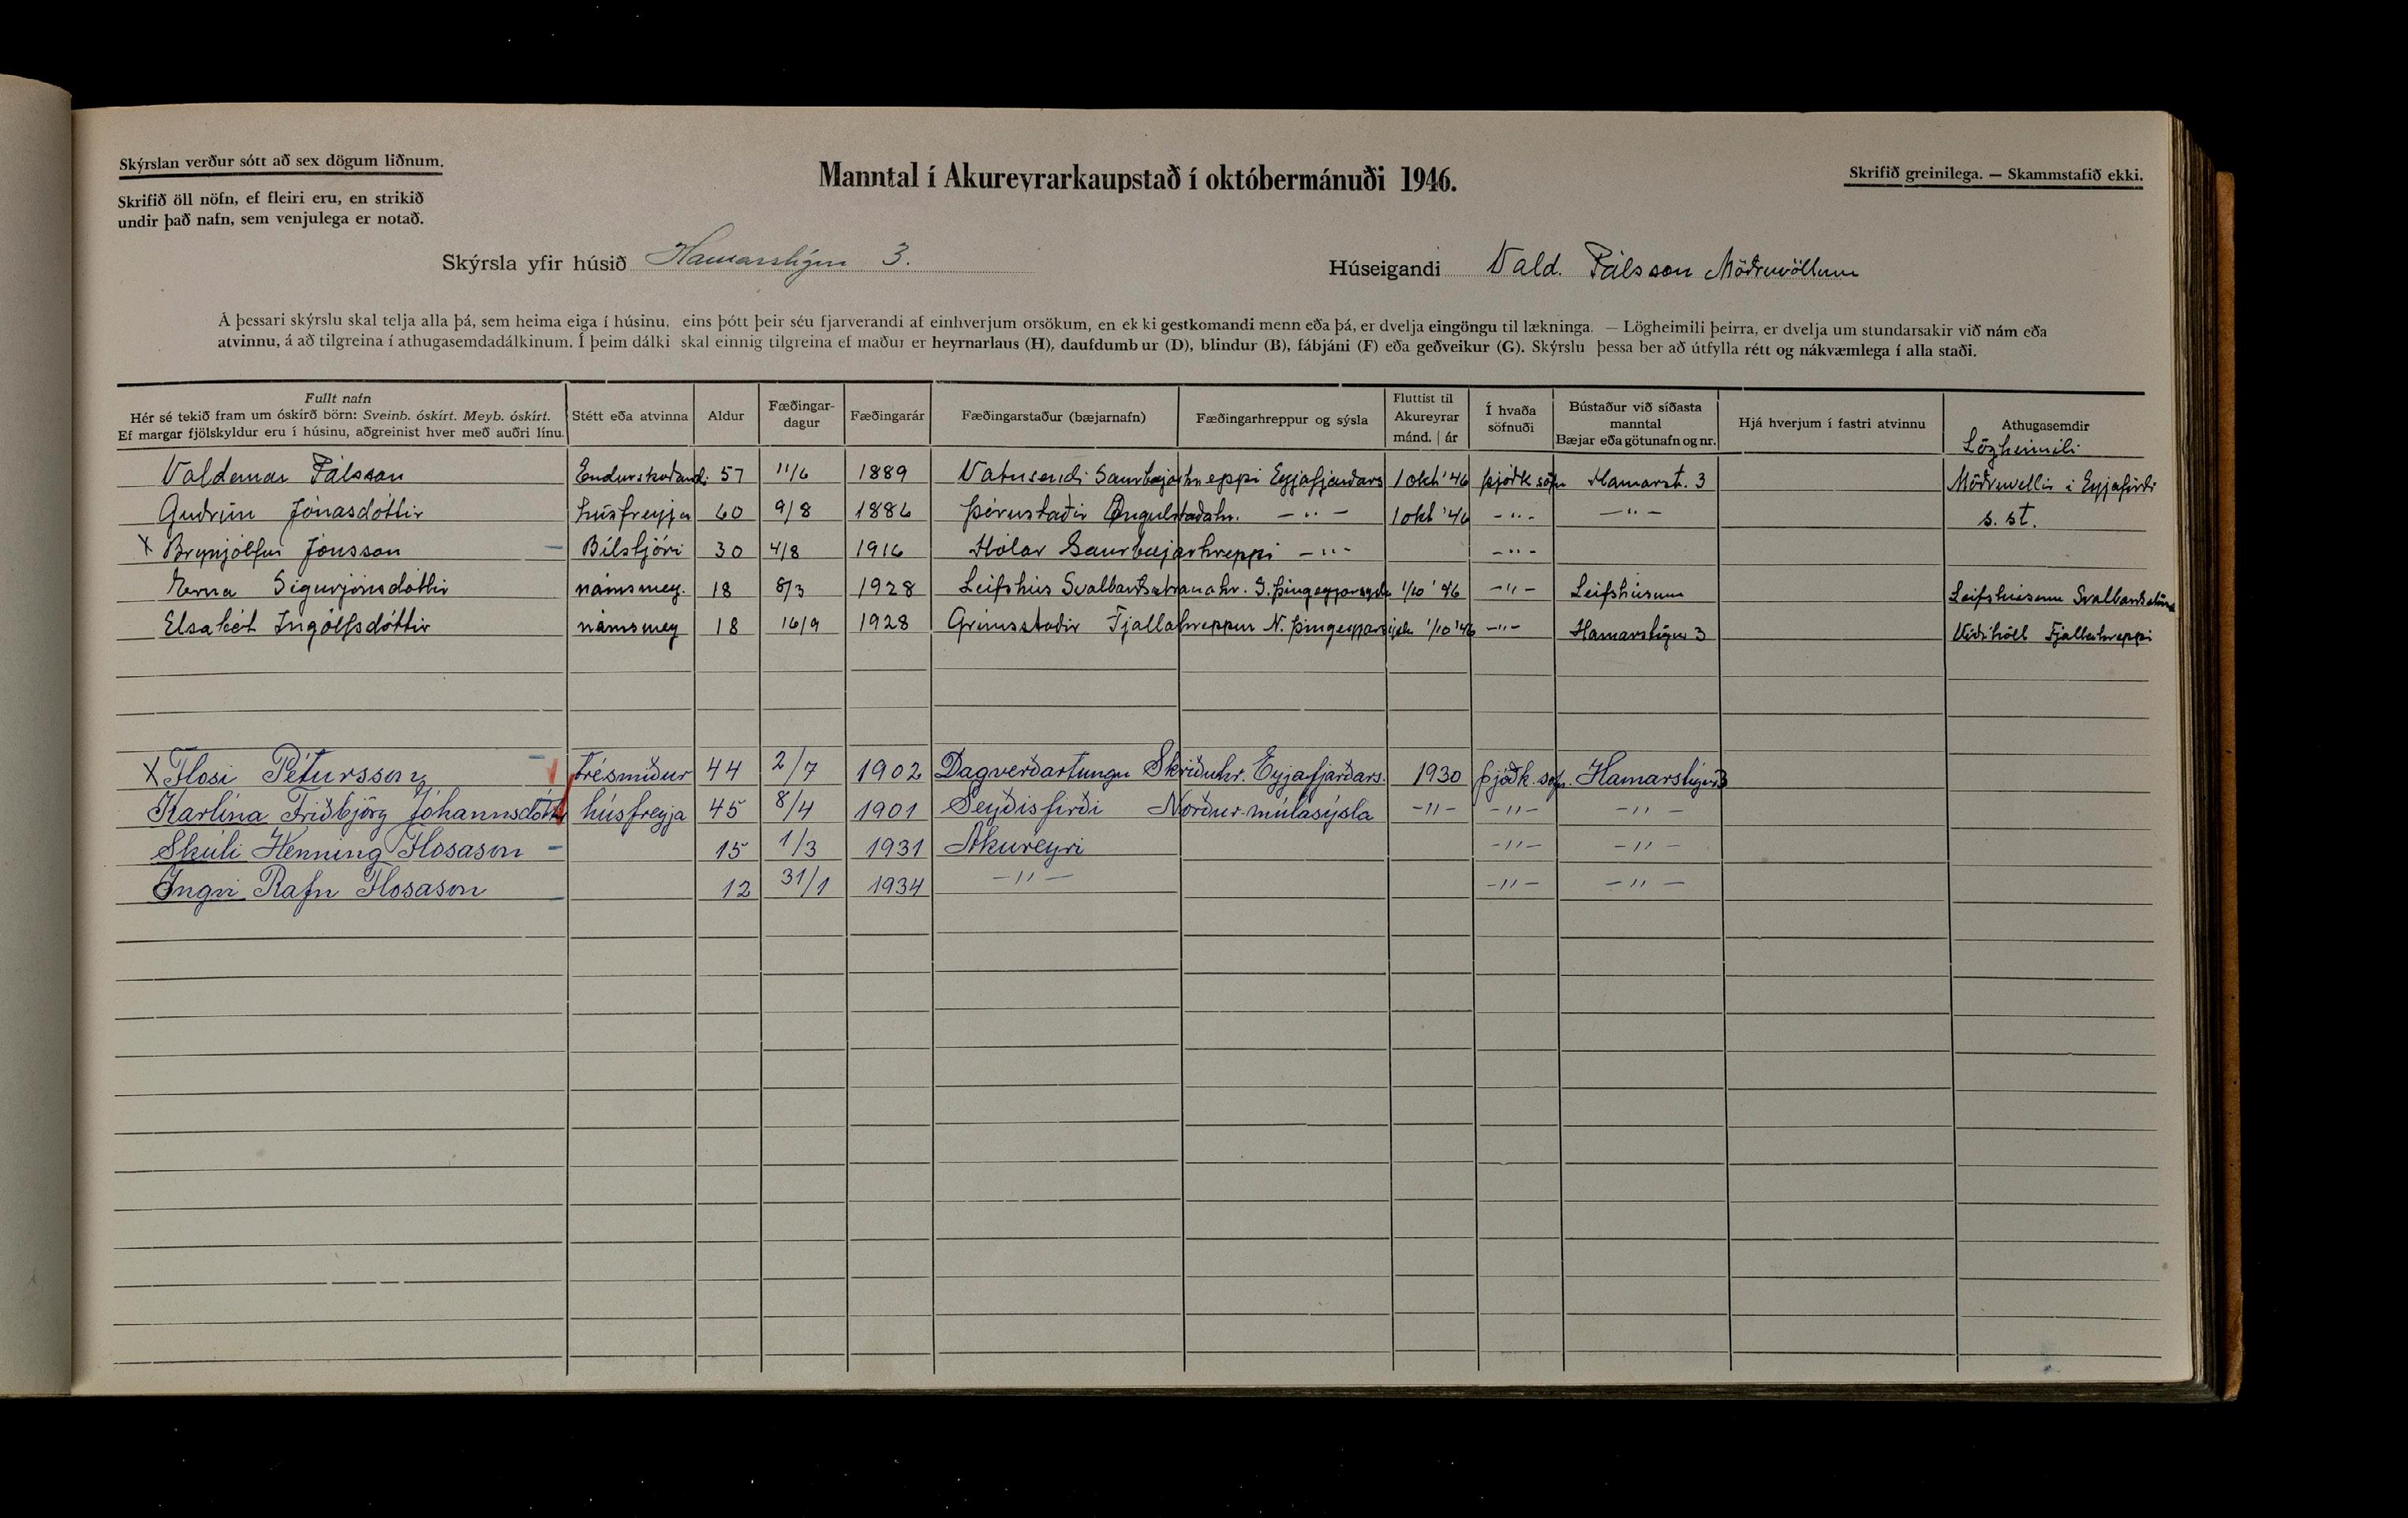 Skýrslan verður sótt að sex dögum liðnum.
Manntal í Akureyrarkaupstað í októbermánuði 1946.
Skrifið greinilega. — Skammstafið ekki.
Skrifið öll nöfn, ef fleiri eru, en strikið
undir það nafn, sem venjulega er notað.
Skýrsla yfir húsið Hamarstígur 3. Húseigandi Vald. Pálsson Möðruvöllum
Á þessari skýrslu skal telja alla þá, sem heima eiga í húsinu, eins þótt þeir séu fjarverandi af einhverjum orsökum, en ekki gestkomandi menn eða þá, er dvelja eingöngu til lækninga. — Lögheimili þeirra, er dvelja um stundarsakir við nám eða
atvinnu, á að tilgreina í athugasemdadálkinum. Í þeim dálki skal einnig tilgreina ef maður er heyrnarlaus (H), daufdumbur (D), blindur (B), fábjáni (F) eða geðveikur (G). Skýrslu þessa ber að útfylla rétt og nákvæmlega í alla staði.
Fullt nafn
Hér sé tekið fram um óskírð börn: Sveinb. óskírt. Meyb. óskírt.
Ef margar fjölskyldur eru í húsinu, aðgreinist hver með auðri línu.
Stétt eða atvinna
Aldur
Fæðingar-
dagur
Fæðingarár
Fæðingarstaður (bæjarnafn)
Fæðingarhreppur og sýsla
Fluttist til
Akureyrar
mánd. | ár
Í hvaða
söfnuði
Bústaður við síðasta
manntal
Bæjar eða götunafn og nr.
Hjá hverjum í fastri atvinnu
Athugasemdir
Lögheimili
Valdemar Pálsson Endurskoðand. 57 11/6 1889 Vatnsendi Saurbæjarhreppi Eyjafjarðars 1 okt '46 þjóðk söfn Hamarst. 3 Möðruvellir í Eyjafirði
Guðrún Jónasdóttir húsfreyja 60 9/8 1886 Þórustaðir Öngulstaðahr. — " — 1 okt '46 — " — — " — s. st.
X Brynjólfur Jónsson — Bílstjóri 30 4/8 1916 Hólar Saurbæjarhreppi — " — — " —
Erna Sigurjónsdóttir námsmey. 18 8/3 1928 Leifshús Svalbarðsstranahr. S. Þingeyjarsýslu 1/10 '46 — " — Leifshúsum Leifshúsum Svalbarðsströnd
Elsabet Ingólfsdóttir námsmey 18 16/9 1928 Grímsstaðir Fjallahreppur N. Þingeyjarsýslu 1/10 '46 — " — Hamarstígur 3 Víðihóll Fjallahreppi
X Flosi Pétursson trésmiður 44 2/7 1902 Dagverðartungu Skriðuhr. Eyjafjarðars. 1930 þjóðk. söfn. Hamarstígur 3
Karlína Friðbjörg Jóhannsdóttir húsfreyja 45 8/4 1901 Seyðisfirði Norður-múlasýsla — " — — " — — " —
Skúli Henning Flosason — 15 1/3 1931 Akureyri — " — — " —
Ingvi Rafn Flosason — 12 31/1 1934 — " — — " — — " —